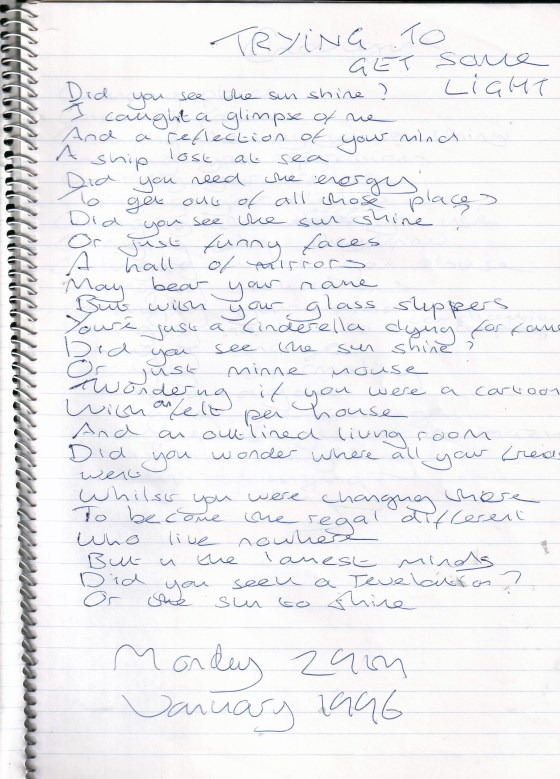 TRYING TO
GET SOME
LIGHT
Did you see the sun shine?
I caught a glimpse of me
And a reflection of your mind
A ship lost at sea
Did you need the energy
To get out of all those places
Did you see the sun shine?
Or just funny faces
A hall of mirrors
May bear your name
But with your glass slippers
You're just a Cinderella dying for fame
Did you see the sun shine?
Or just minne mouse
Wondering if you were a cartoon
With an felt pen house
And an outlined living room
Did you wonder where all your
went
Whilst you were changing there
To become the regal different
Who live nowhere
But in the minds
Did you seek a revelation?
Or the sun to shine
Monday 29th
January 1996